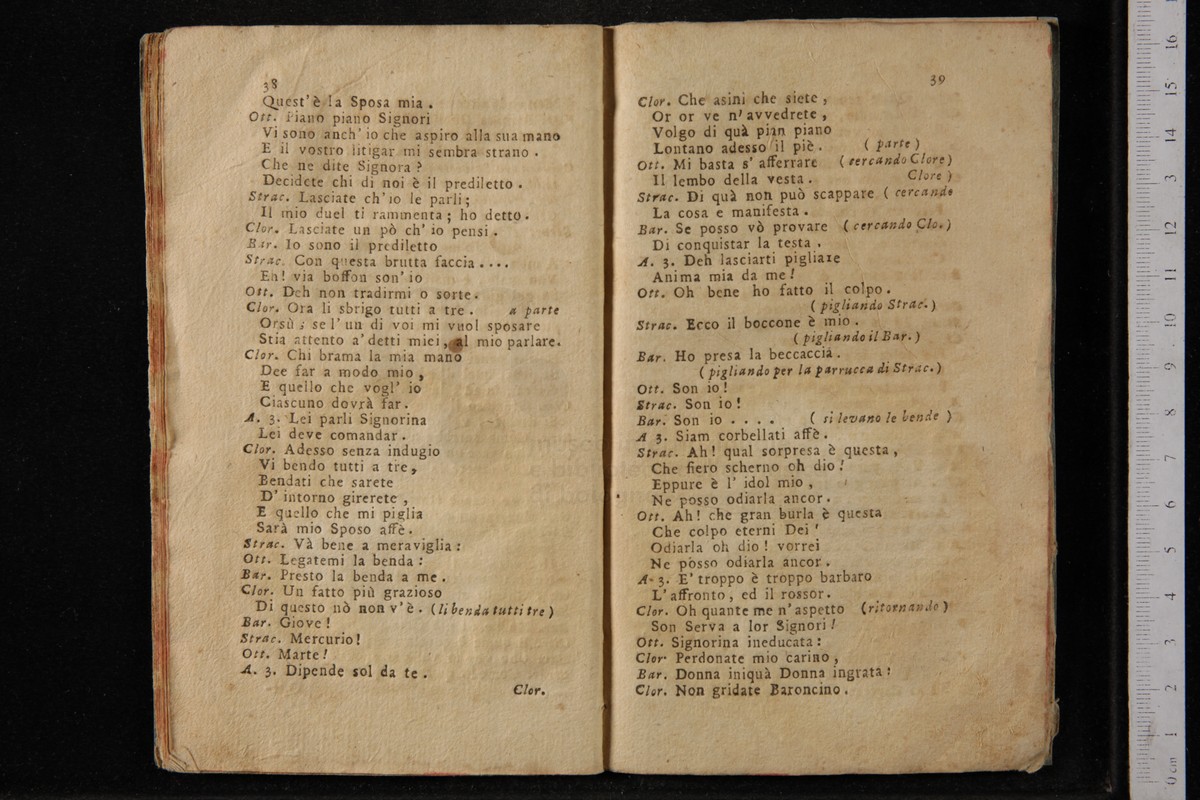 38
Quest'è la Sposa mia .
Ott. Piano piano Signori
Vi sono anch' io che aspiro alla sua mano
E il vostro litigar mi sembra strano .
Che ne dite Signora ?
Decidete chi di noi è il prediletto .
Strac. Lasciate ch' io le parli ;
Il mio duel ti rammenta ; ho detto .
Clor. Lasciate un pò ch' io pensi .
Bar. Io sono il prediletto
Strac. Con questa brutta faccia . . . .
Eh! via boffon son' io
Ott. Deh non tradirmi o sorte .
Clor. Ora li sbrigo tutti a tre . a parte
Orsù ; se l' un di voi mi vuol sposare
Stia attento a' detti miei , al mio parlare.
Clor. Chi brama la mia mano
Dee far a modo mio ,
E quello che vogl' io
Ciascuno dovrà far .
A. 3. Lei parli Signorina
Lei deve comandar .
Clor. Adesso senza indugio
Vi bendo tutti a tre ,
Bendati che sarete
D' intorno girerete ,
E quello che mi piglia
Sarà mio Sposo affè .
Strac. Và bene a meraviglia :
Ott. Legatemi la benda :
Bar. Presto la benda a me .
Clor. Un fatto più grazioso
Di questo nò non v' è . ( li benda tutti tre )
Bar. Giove !
Strac. Mercurio !
Ott. Marte !
A. 3. Dipende sol da te .
Clor.
39
Clor. Che asini che siete ,
Or or ve n' avvedrete ,
Volgo di quà pian piano
Lontano adesso il piè . ( parte )
Ott. Mi basta s' afferrare ( cercando Clore )
Il lembo della vesta . Clore )
Strac. Di quà non può scappare ( cercando
La cosa e manifesta .
Bar. Se posso vò provare ( cercando Clo. )
Di conquistar la testa .
A. 3. Deh lasciarti pigliare
Anima mia da me !
Ott. Oh bene ho fatto il colpo .
( pigliando Strac. )
Strac. Ecco il boccone è mio .
( pigliando il Bar. )
Bar. Ho presa la beccaccia .
( pigliando per la parrucca di Strac. )
Ott. Son io !
Strac. Son io !
Bar. Son io . . . . ( si levano le bende )
A 3. Siam corbellati affè .
Strac. Ah! qual sorpresa è questa ,
Che fiero scherno oh dio !
Eppure è l' idol mio ,
Ne posso odiarla ancor .
Ott. Ah! che gran burla è questa
Che colpo eterni Dei '
Odiarla oh dio ! vorrei
Ne posso odiarla ancor .
A. 3. E' troppo è troppo barbaro
L' affronto , ed il rossor .
Clor. Oh quante me n' aspetto ( ritornando )
Son Serva a lor Signori !
Ott. Signorina ineducata :
Clor. Perdonate mio carino ,
Bar. Donna iniquà Donna ingrata :
Clor. Non gridate Baroncino .